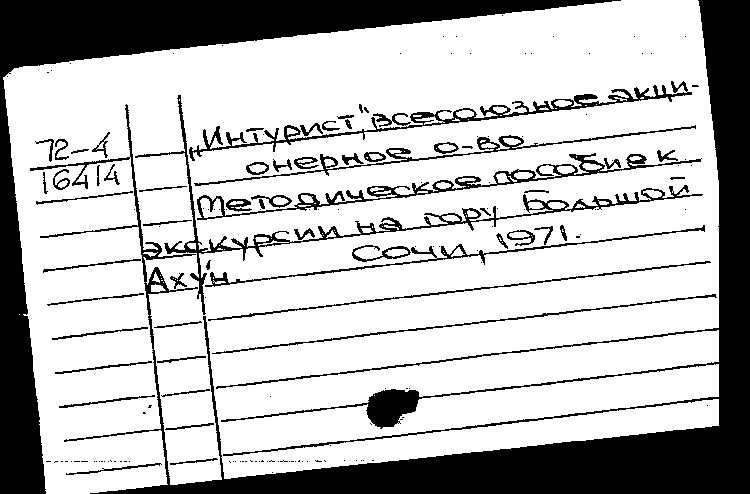 72-4
16414
„Интурист“, всесоюзное акци-
онерное о-во
Методическое пособие к
экскурсии на гору Большой
Ахун. Сочи, 1971.